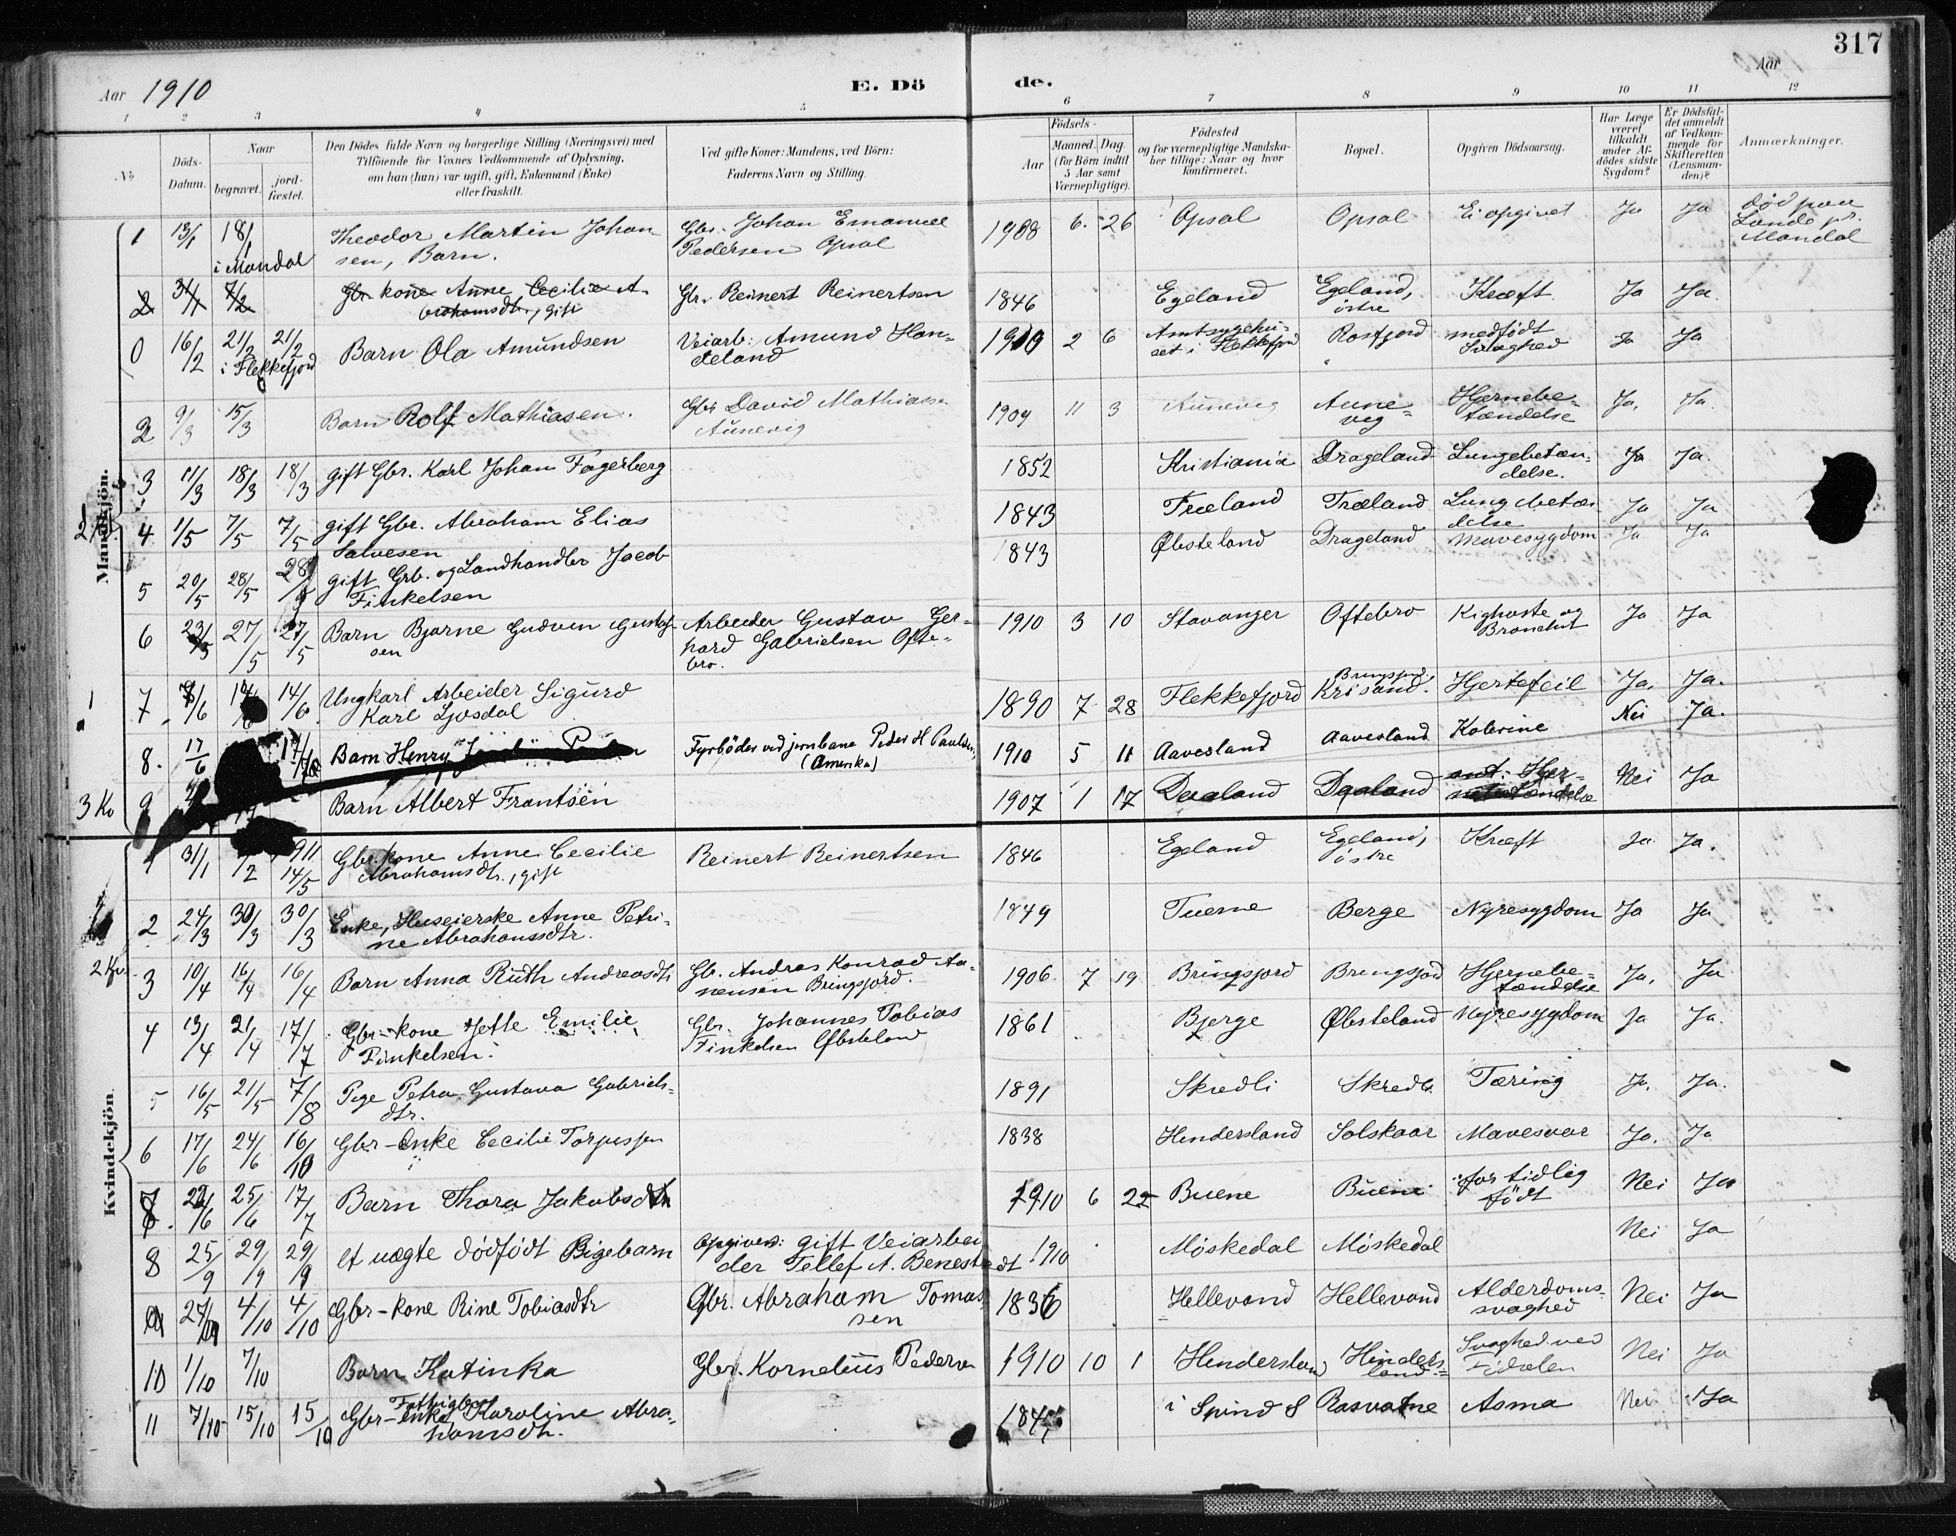 317
Aar 1910 E. Dö de. Aar
1 2 3 4 5 6 7 8 9 10 11 12
No Döds-Datum. Naar begravet. jord-fæstet. Den Dödes fulde Navn og borgerlige Stilling (Næringsvei) med Tilföiende for Voxnes Vedkommende af Oplysning, om han (hun) var ugift, gift, Enkemand (Enke) eller fraskilt. Ved gifte Koner: Mandens, ved Börn: Faderens Navn og Stilling. Födsels- Aar Maaned. Dag. (for Börn indtil 5 Aar samt Værnepligtige). Födested og for værnepligtige Mandska-ber tillige: Naar og hvor konfirmeret. Bopæl. Opgiven Dödsaarsag. Har Læge været tilkaldt under Af-dödes sidste Sygdom? Er Dödsfal-det anmeldt af Vedkom-mende for Skifteretten (Lensman-den)? Anmærkninger.
Mandkjön.
1 13/1 18/1 i Mandal Theodor Martin Johansen, Barn. Gbr. Johan Emanuel Pedersen Opsal 1908 6. 26 Opsal Opsal Ei opgivet Ja Ja död paa Lande pr. Mandal
2 31/1 7/2 Gbr-kone Anne Cecilie Abrahamsdtr, gift Gbr. Reinert Reinertsen 1846 Egeland Egeland, östre Kræft Ja Ja
0 16/2 21/2 21/2 i Flekkefjord Barn Ola Amundsen Veiarb: Amund Handeland 1910 2 6 Amtsygehuset i Flekkefjord Rosfjord medfödt Svaghed Ja Ja
2 9/3 15/3 Barn Rolf Mathiasen. Gbr David Mathiassen Aunevig 1909 11 3 Aunevig Auneveg Hjernebetændelse Ja, Ja
3 11/3 18/3 18/3 gift Gbr. Karl Johan Fagerberg 1852 Kristiania Drageland Lungebetændelse. Ja Ja.
4 1/5 7/5 7/5 gift Gbr. Abraham Elias Salvesen 1843 Træland Træland Lungebetændelse Ja Ja
5 20/5 28/5 28/5 gift Grb. og Landhandler Jacob Finkelsen 1843 Øbsteland Drageland Mavesygdom Ja Ja
6 23/5 27/5 27/5 Barn Bjarne Gudven Gustafsen Arbeider Gustav Gerhard Gabrielsen Oftebro. 1910 3 10 Stavanger Oftebro Kighoste og Bronchit Ja Ja
7 7/6 14/6 14/6 Ungkarl Arbeider Sigurd Karl Ljosdal 1890 7 28 Flekkefjord Krisand. Hjertefeil Ja, Ja.
8. 17/6 Barn Henry Fyrböder ved jernbane Peder H Paulsen, (Amerika) 1910 5 11 Aavesland Aavesland Kolerine Nei Ja.
9 Barn Albert Frantsen 1907 1 17 Daaland Daaland Nei Ja
3 Ko
Kvindekjön.
1 31/1 7/2 1911 14/5 Gbr kone Anne Cecilie Abrahamsdtr., gift Reinert Reinertsen 1846 Egeland Egeland, östre Kræft Ja Ja.
2 24/3 30/3 30/3 Enke, Huseierske Anne Petrine Abrahamsdtr. 1849 Tuene Berge Nyresygdom Ja Ja
3 10/4 16/4 16/4 Barn Anna Ruth Andreasdtr Gb. Andreas Konrad Aanensen Bringsjord. 1906 7 19 Bringsjord Bringsjord Hjernebetændelse Ja, Ja
4 13/4 21/4 17/7 Gbr-kone Jette Emilie Finkelsen. Gbr. Johannes Tobias Finkelsen Øbsteland 1861 Bjerge Øbsteland Nyresygdom Ja Ja.
5 16/5 21/5 7/8 Pige Petra Gustava Gabrielsdtr. 1891 Skredli Skredli Tæring Ja, Ja.
6 17/6 24/6 16/10 Gbr-Enke Cecilie Torjussen 1838 Hindersland Solskaar Mavesvar Ja. Ja
7 22/6 25/6 17/7 Barn Thora Jakobsdtr 1910 6 22 Buene Buene for tidlig födt Nei Ja
8 25/9 29/9 29/9 et uægte dödfödt Pigebarn Opgiven: gift Veiarbeider Tellef A. Benestvedt 1910 Möskedal Möskedal Nei Ja
9 27/9 4/10 4/10 Gbr-kone Rine Tobiasdtr Gbr. Abraham Tomassen 1836 Hellevand Hellevand Alderdomssvaghed Nei Ja
10 1/10 7/10 Barn Katinka Gbr. Kornelius Pedersen 1910 10 1 Hindersland Hindersland Svaghed ved Födselen Nei Ja
11 7/10 15/10 15/10 Gbr-enke Karoline Abrahamsdtr. i Spind S Rosvatne Asma Nei Ja